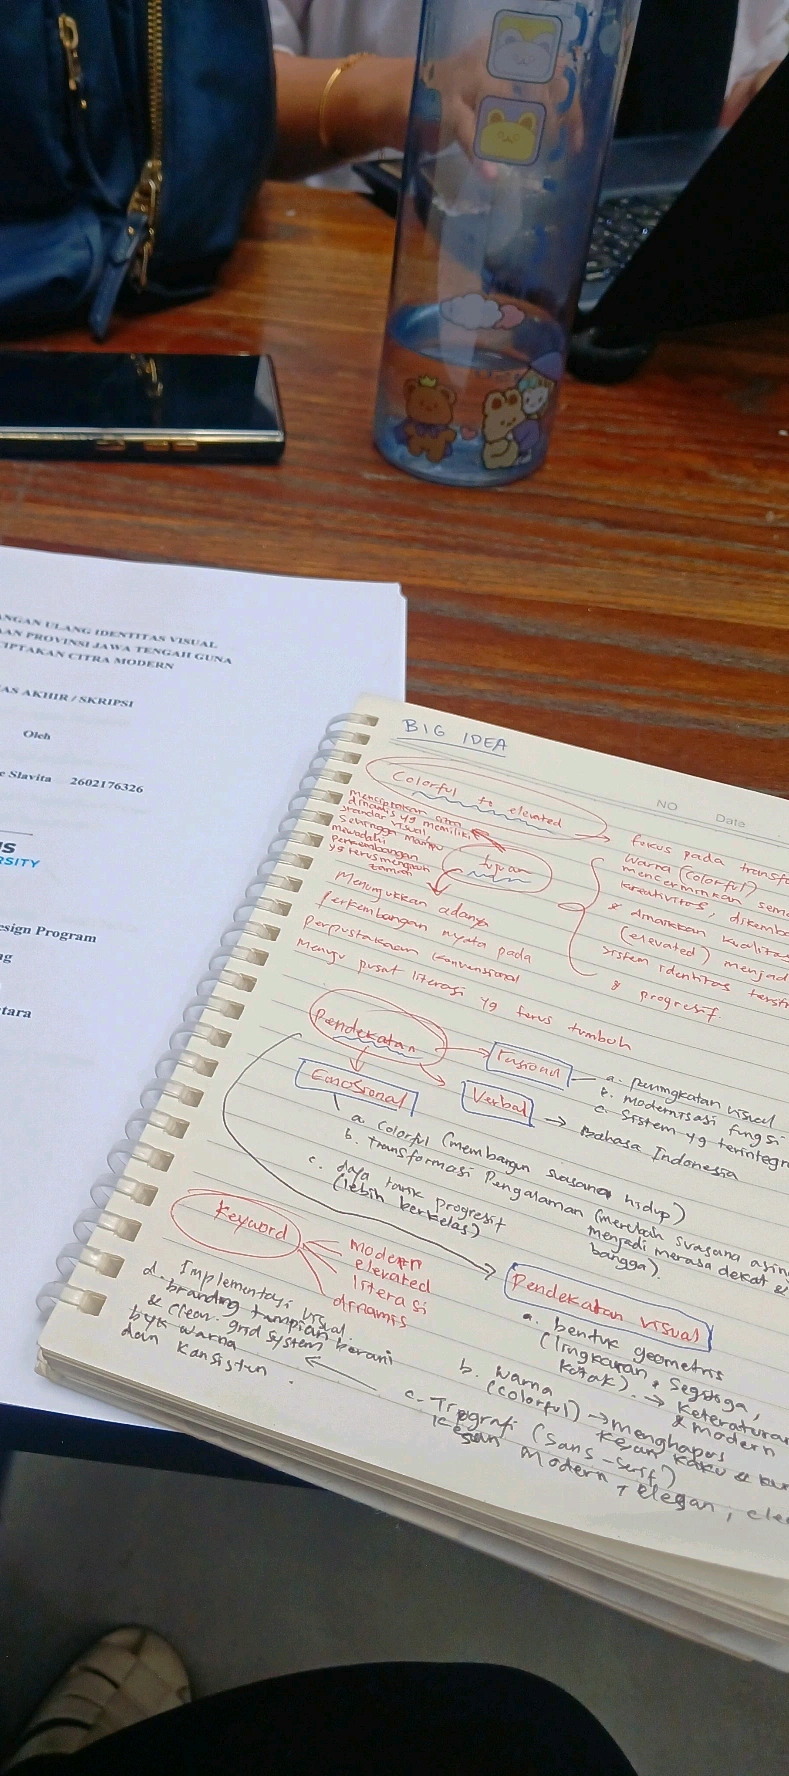 NGAN ULANG IDENTITAS VISUAL
AAN PROVINSI JAWA TENGAH GUNA
CIPTAKAN CITRA MODERN
AS AKHIR / SKRIPSI
Oleh
e Slavita 2602176326
US
RSITY
esign Program
ng
tara
BIG IDEA
NO Date
Colorful to elevated
fokus pada transf
warna (colorful)
mencerminkan sem
kreativitas, dikemba
(elevated) menjad
sistem identitas
& progresif.
Menciptakan citra
dinamis yg memiliki
standar visual
sehingga mampu
mewadahi
perkembangan
yg terus
zaman
tujuan
Menunjukkan adanya
perkembangan nyata pada
perpustakaan konvensional
menuju pusat literasi yg terus tumbuh
Pendekatan
rasional
a. peningkatan visual
b. modernisasi fungsi
c. sistem yg terintegr
Emosional
Verbal
Bahasa Indonesia
a. colorful (membangun suasana hidup)
b. transformasi pengalaman (merubah suasana asin
menjadi merasa dekat &
bangga).
c. daya tarik progresif
(lebih berkelas)
Keyword
modern
elevated
literasi
dinamis
Pendekatan visual
a. bentuk geometris
(lingkaran, segitiga,
kotak). → keteratura
& modern
b. warna
(colorful) → menghapus
kesan kaku &
c. Tipografi (sans-serif)
kesan modern, elegan, cle
d. Implementasi visual.
branding tampilan berani
& clean. grid system
byk warna
dan konsisten.